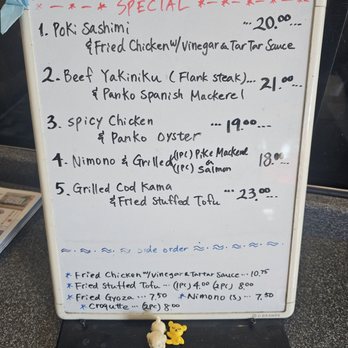 SPECIAL
1. Poki Sashimi ... 20.00...
& Fried Chicken w/ Vinegar & Tar Tar Sauce
2. Beef Yakiniku (Flank steak)... 21.00...
& Panko Spanish Mackerel
3. Spicy Chicken ... 19.00...
& Panko Oyster
4. Nimono & Grilled (1pc) Pike Mackerel or (1pc) Salmon 18.00...
5. Grilled Cod Kama ... 23.00...
& Fried Stuffed Tofu
side order
* Fried Chicken w/ Vinegar & Tartar Sauce ... 10.75
* Fried Stuffed Tofu ... (1pc) 4.00 (2pc) 8.00
* Fried Gyoza ... 7.50 * Nimono (S) ... 7.50
* Croquette ... (2pc) 8.00